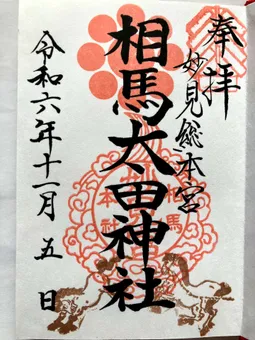 奉拝
妙見総本宮
相馬太田神社
令和六年十一月五日